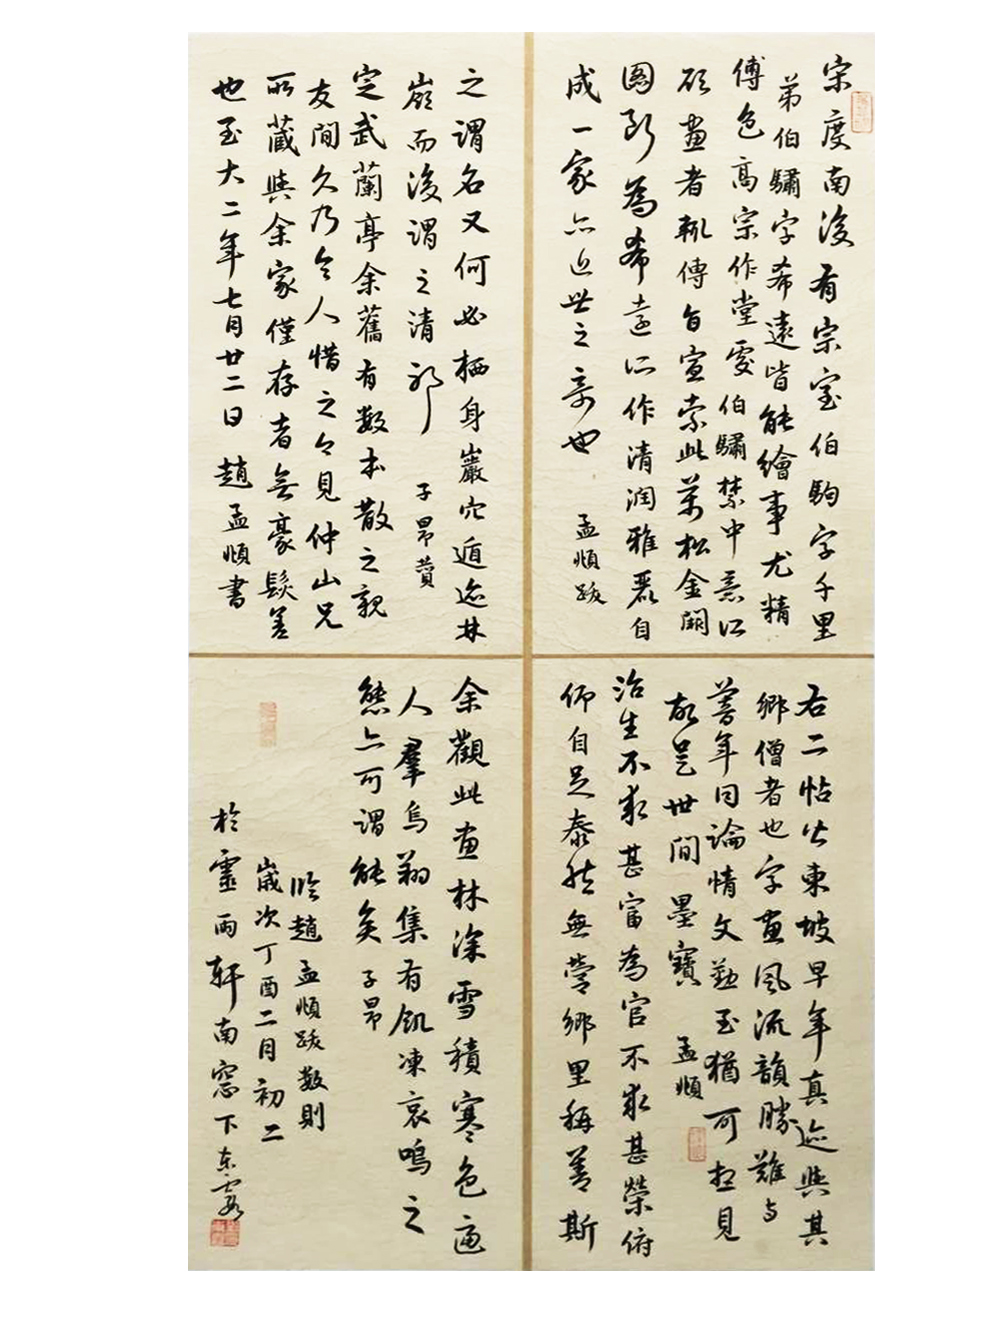 宋度南後有宗室伯駒字千里
弟伯驌字希遠皆能繪事尤精
傅色高宗作堂處伯驌禁中意所
欲畫者輒傳旨宣索此萬松金闕
圖斷為希遠所作清潤雅麗自
成一家亦近世之奇也
孟頫跋
右二帖皆東坡早年真迹與其
鄉僧者也字畫風流韻勝難與
暮年同論情文勤至猶可想見
故是世間墨寶
孟頫
治生不求甚富為官不求甚榮俯
仰自足泰然無營鄉里稱善斯
之謂名又何必栖身巖穴遁迹林
嶺而後謂之清邪
子昂贊
定武蘭亭余舊有數本散之親
友間久乃令人惜之今見仲山兄
所藏與余家僅存者無豪髮差
也至大二年七月廿二日
趙孟頫書
余觀此畫林深雪積寒色逼
人羣烏翔集有飢凍哀鳴之
態亦可謂能矣
子昂
臨趙孟頫跋數則
歲次丁酉二月初二
於靈雨軒南窗下東霞